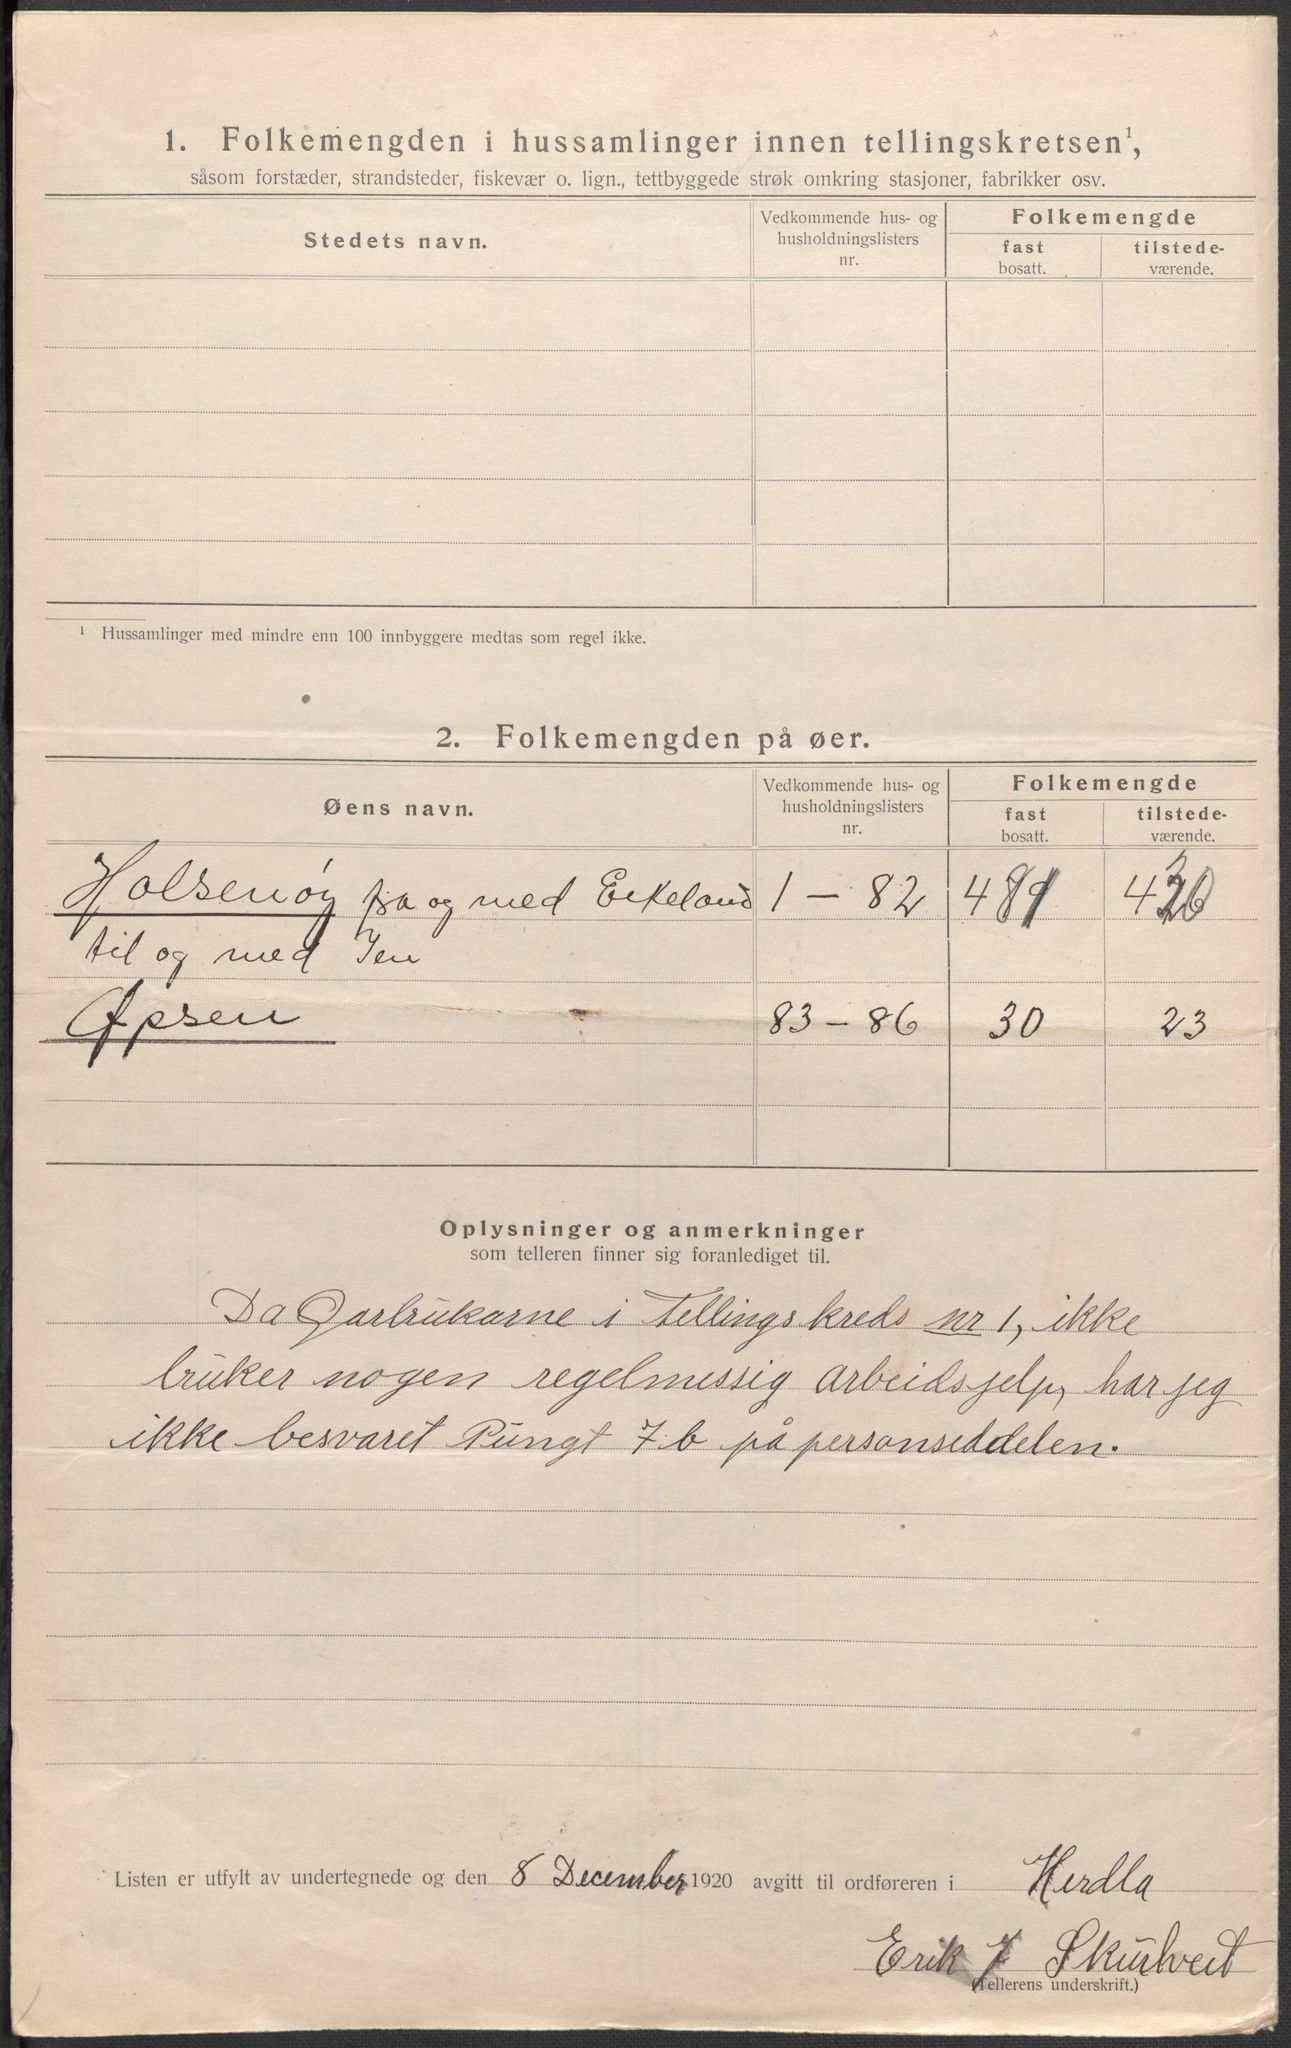 1. Folkemengden i hussamlinger innen tellingskretsen¹,
såsom forstæder, strandsteder, fiskevær o. lign., tettbyggede strøk omkring stasjoner, fabrikker osv.
Stedets navn.
Vedkommende hus- og
husholdningslisters
nr.
Folkemengde
fast
bosatt.
tilstede-
værende.
¹ Hussamlinger med mindre enn 100 innbyggere medtas som regel ikke.
2. Folkemengden på øer.
Øens navn.
Vedkommende hus- og
husholdningslisters
nr.
Folkemengde
fast
bosatt.
tilstede-
værende.
Holsenøy fra og med Eikeland 1 - 82
til og med Jen
Øpsen 83 - 86 30 23
Oplysninger og anmerkninger
som telleren finner sig foranlediget til.
Da Garbrukarne i Tellingskreds nr 1, ikke
bruker nogen regelmessig arbeidsjelp, har jeg
ikke besvaret Pungt 7 b på personseddelen.
Listen er utfylt av undertegnede og den 8 December 1920 avgitt til ordføreren i Herdla
Erik Skurtveit
(Tellerens underskrift.)